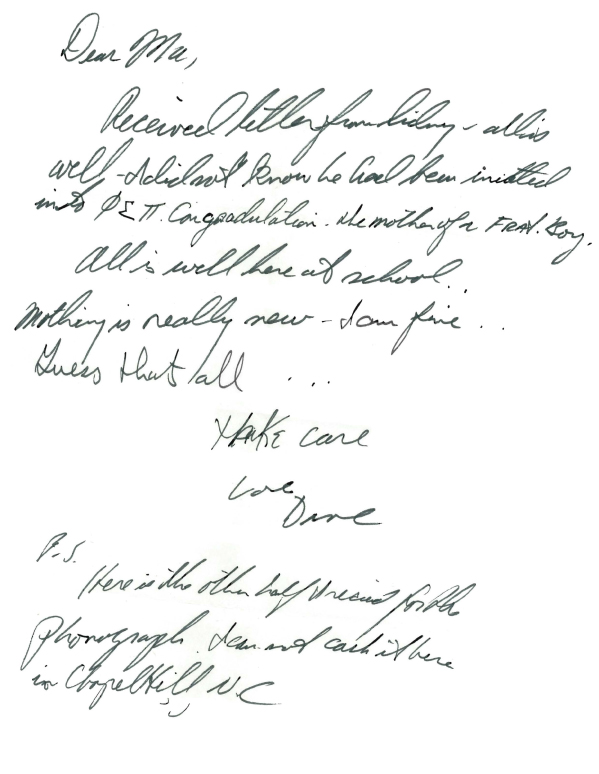 Dear Ma,
Received letter from Sidney - all is
well - I did not know he had been initiated
into ΦΣΠ. Congradulation. the mother of a FRAT. Boy.
All is well here at school..
Nothing is really new - I am fine ...
Guess that's all ....
Take care
Love
Dave
P.S.
Here is the other half for the
phonograph. I can not cash it here
in Chapel Hill, N.C